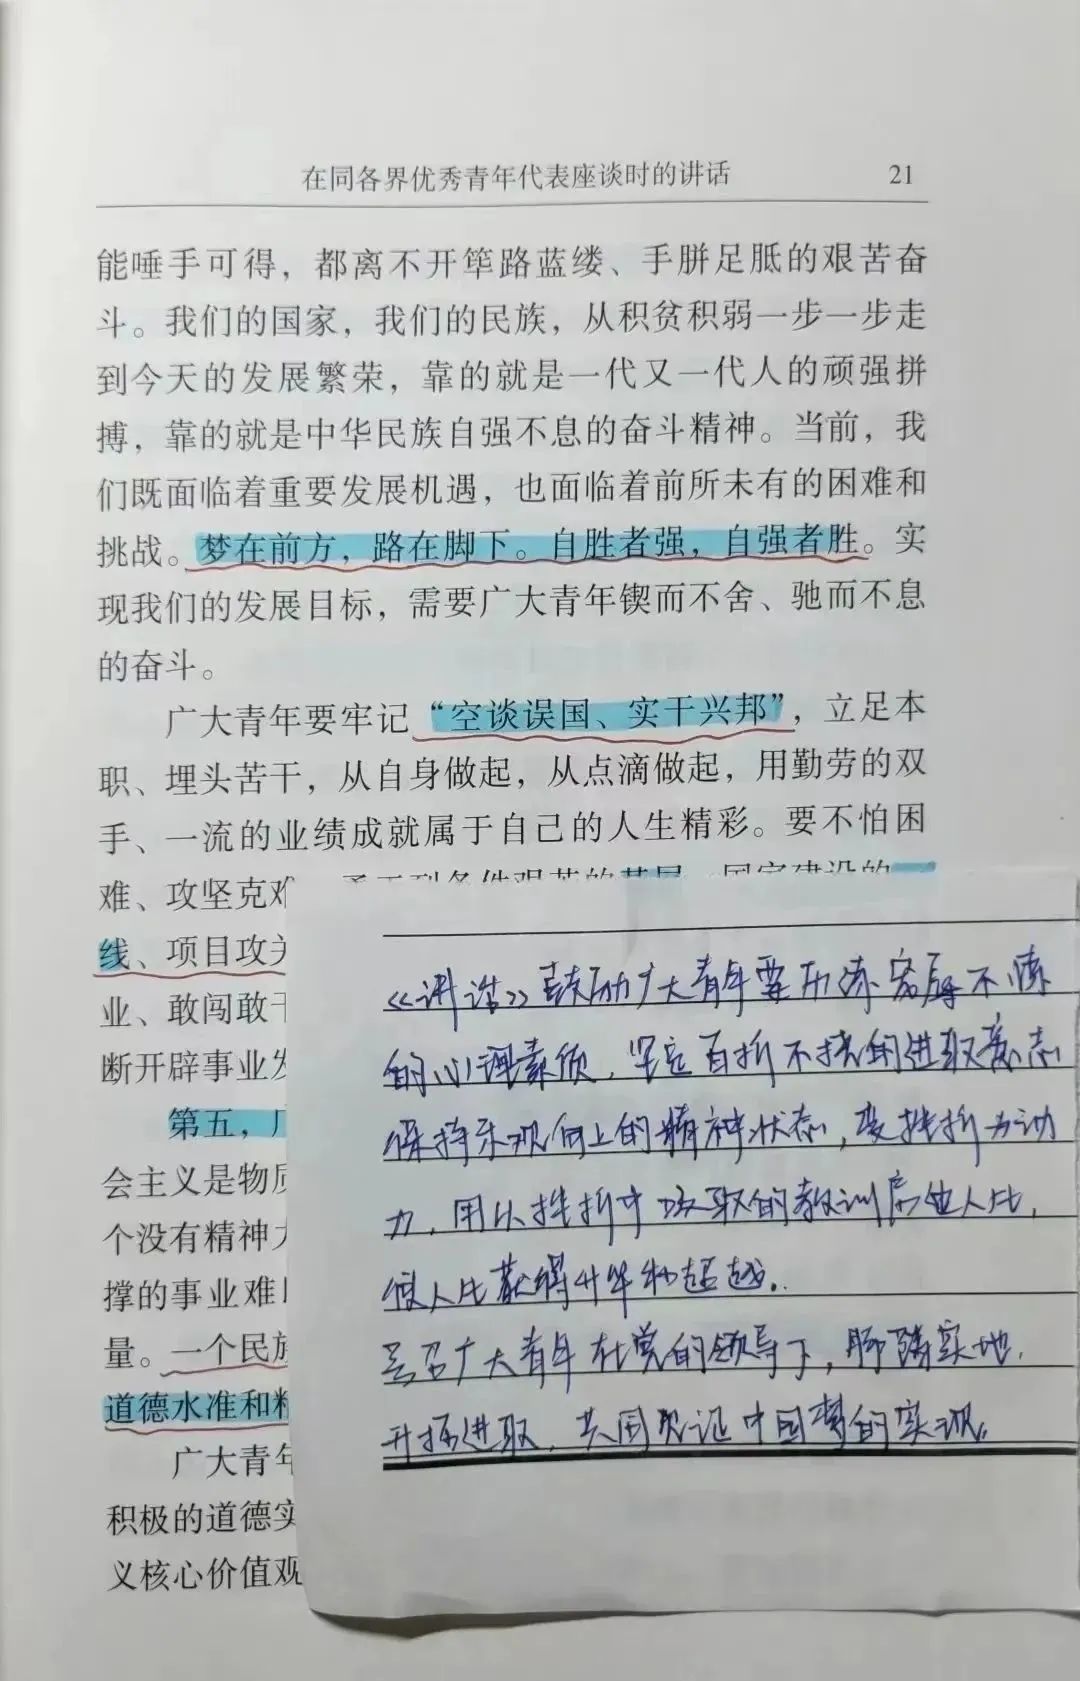 在同各界优秀青年代表座谈时的讲话 21
能唾手可得，都离不开筚路蓝缕、手胼足胝的艰苦奋
斗。我们的国家，我们的民族，从积贫积弱一步一步走
到今天的发展繁荣，靠的就是一代又一代人的顽强拼
搏，靠的就是中华民族自强不息的奋斗精神。当前，我
们既面临着重要发展机遇，也面临着前所未有的困难和
挑战。梦在前方，路在脚下。自胜者强，自强者胜。实
现我们的发展目标，需要广大青年锲而不舍、驰而不息
的奋斗。
广大青年要牢记“空谈误国、实干兴邦”，立足本
职、埋头苦干，从自身做起，从点滴做起，用勤劳的双
手、一流的业绩成就属于自己的人生精彩。要不怕困
难、攻坚克难，勇于到条件艰苦的基层、国家建设的一
线、项目攻关
业、敢闯敢干
断开辟事业发
第五，广
会主义是物质
个没有精神力
撑的事业难以
量。一个民族
道德水准和精
广大青年
积极的道德实
义核心价值观
《讲话》鼓励广大青年要历练宠辱不惊
的心理素质，坚定百折不挠的进取意志
保持乐观向上的精神状态，变挫折为动
力，用从挫折中汲取的教训启迪人生，
使人生获得升华和超越。
号召广大青年在党的领导下，脚踏实地，
开拓进取，共同见证中国梦的实现。